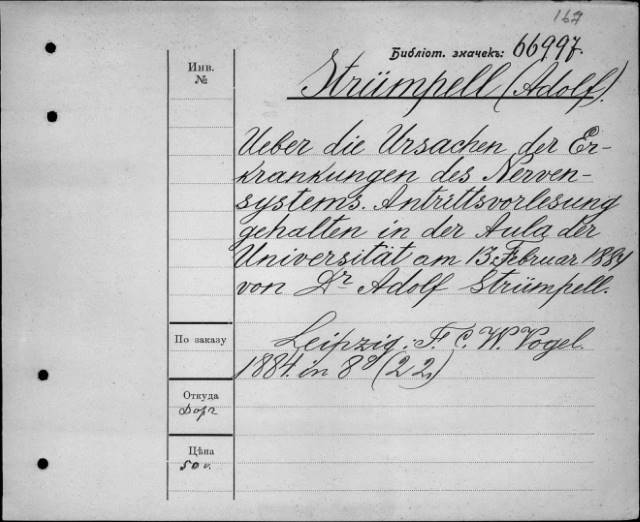 167
Библіот. значекъ: 66997.
Инв.
№
Strümpell (Adolf).
Ueber die Ursachen der Er-
krankungen des Nerven-
systems. Antrittsvorlesung
gehalten in der Aula der
Universität am 13. Februar 1884
von Dr Adolf Strümpell.
По заказу
Leipzig. F. C. W. Vogel
1884. in 8° (22)
Откуда
Дорг
Цѣна
50